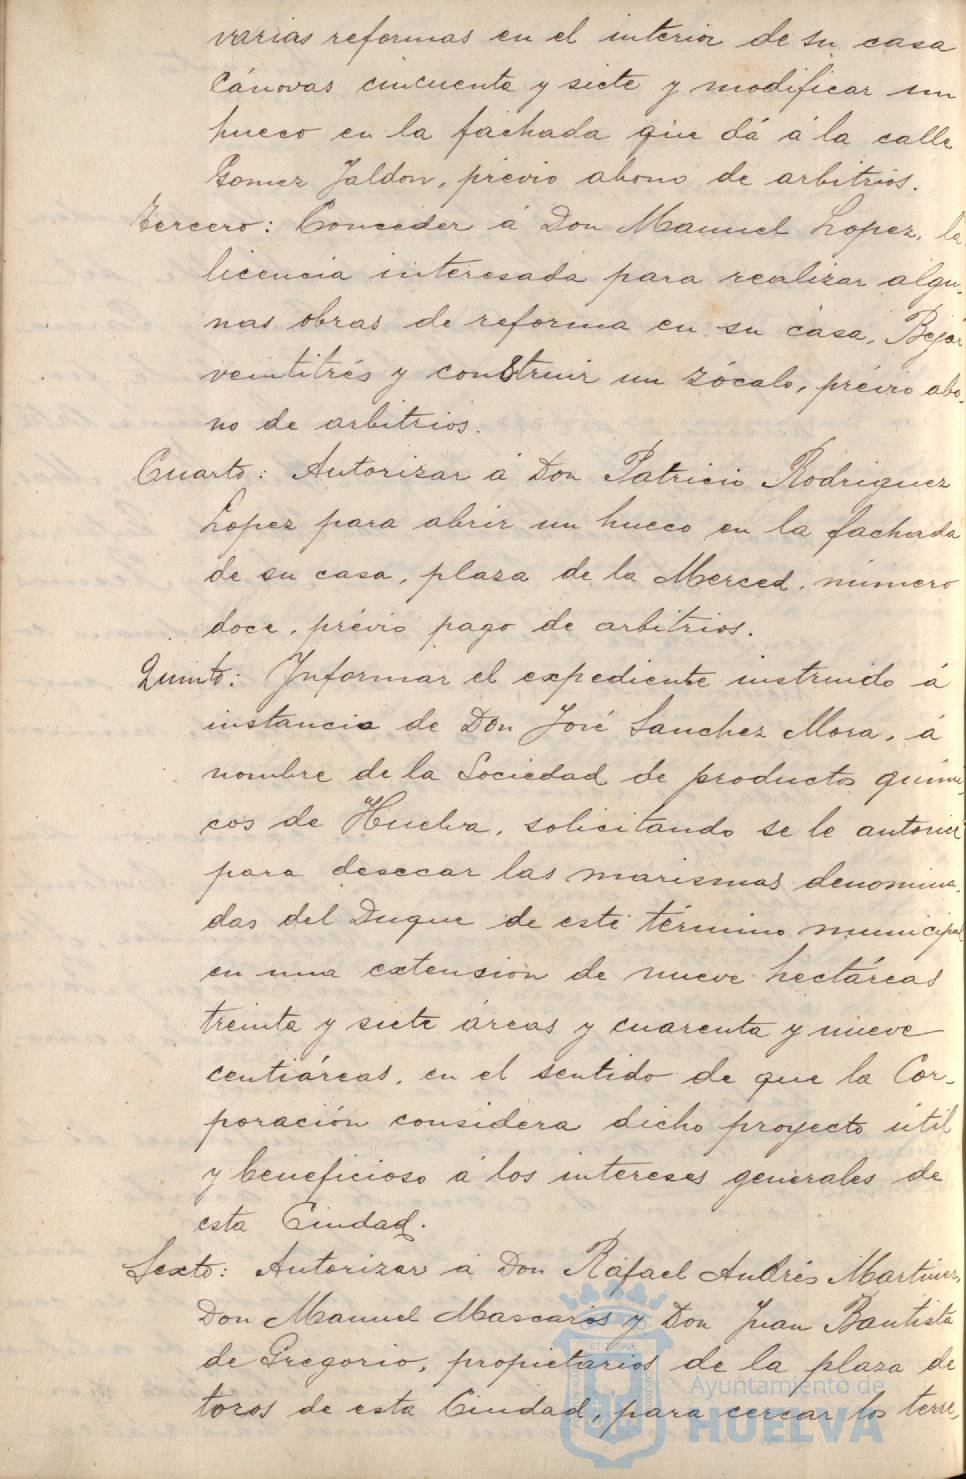 varias reformas en el interior de su casa
Cánovas cincuenta y siete y modificar un
hueco en la fachada que dá á la calle
Gomez Jaldon, prévio abono de arbitrios.
Tercero: Conceder á Don Manuel Lopez, la
licencia interesada para realizar algu-
nas obras de reforma en su casa, Bejar
veintitrés y construir un zócalo, prévio abo-
no de arbitrios.
Cuarto: Autorizar á Don Patricio Rodriguez
Lopez para abrir un hueco en la fachada
de su casa, plaza de la Merced, número
doce, prévio pago de arbitrios.
Quinto: Informar el expediente instruido á
instancia de Don José Sanchez Mora, á
nombre de la Sociedad de productos quími-
cos de Huelva, solicitando se le autorice
para desecar las marismas denomina-
das del Duque de este término municipal
en una extension de nueve hectáreas
treinta y siete áreas y cuarenta y nueve
centiáreas, en el sentido de que la Cor-
poración considera dicho proyecto útil
y beneficioso á los intereses generales de
esta Ciudad.
Sexto: Autorizar á Don Rafael Andrés Martinez,
Don Manuel Mascarós y Don Juan Bautista
de Gregorio, propietarios de la plaza de
toros de esta Ciudad, para cercar los terre-
Ayuntamiento de
HUELVA